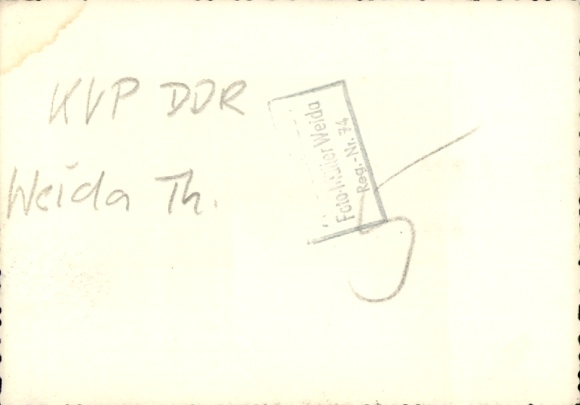 KVP DDR
Weida Th.
Foto-Müller Weida
Reg.-Nr. 74
5